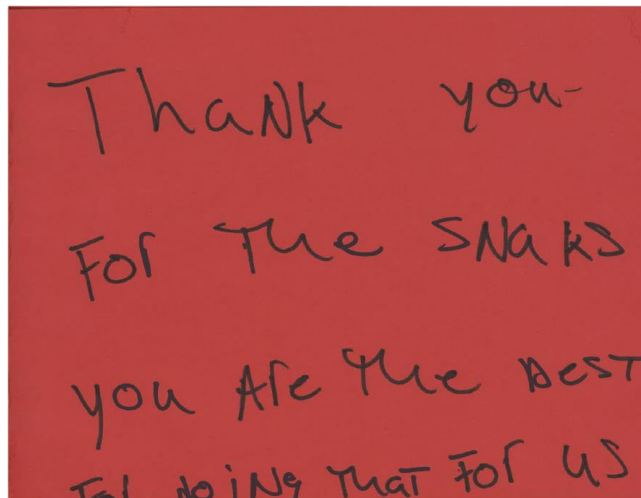 Thank you
For The SNaks
you Are The Best
For doiNg That For us